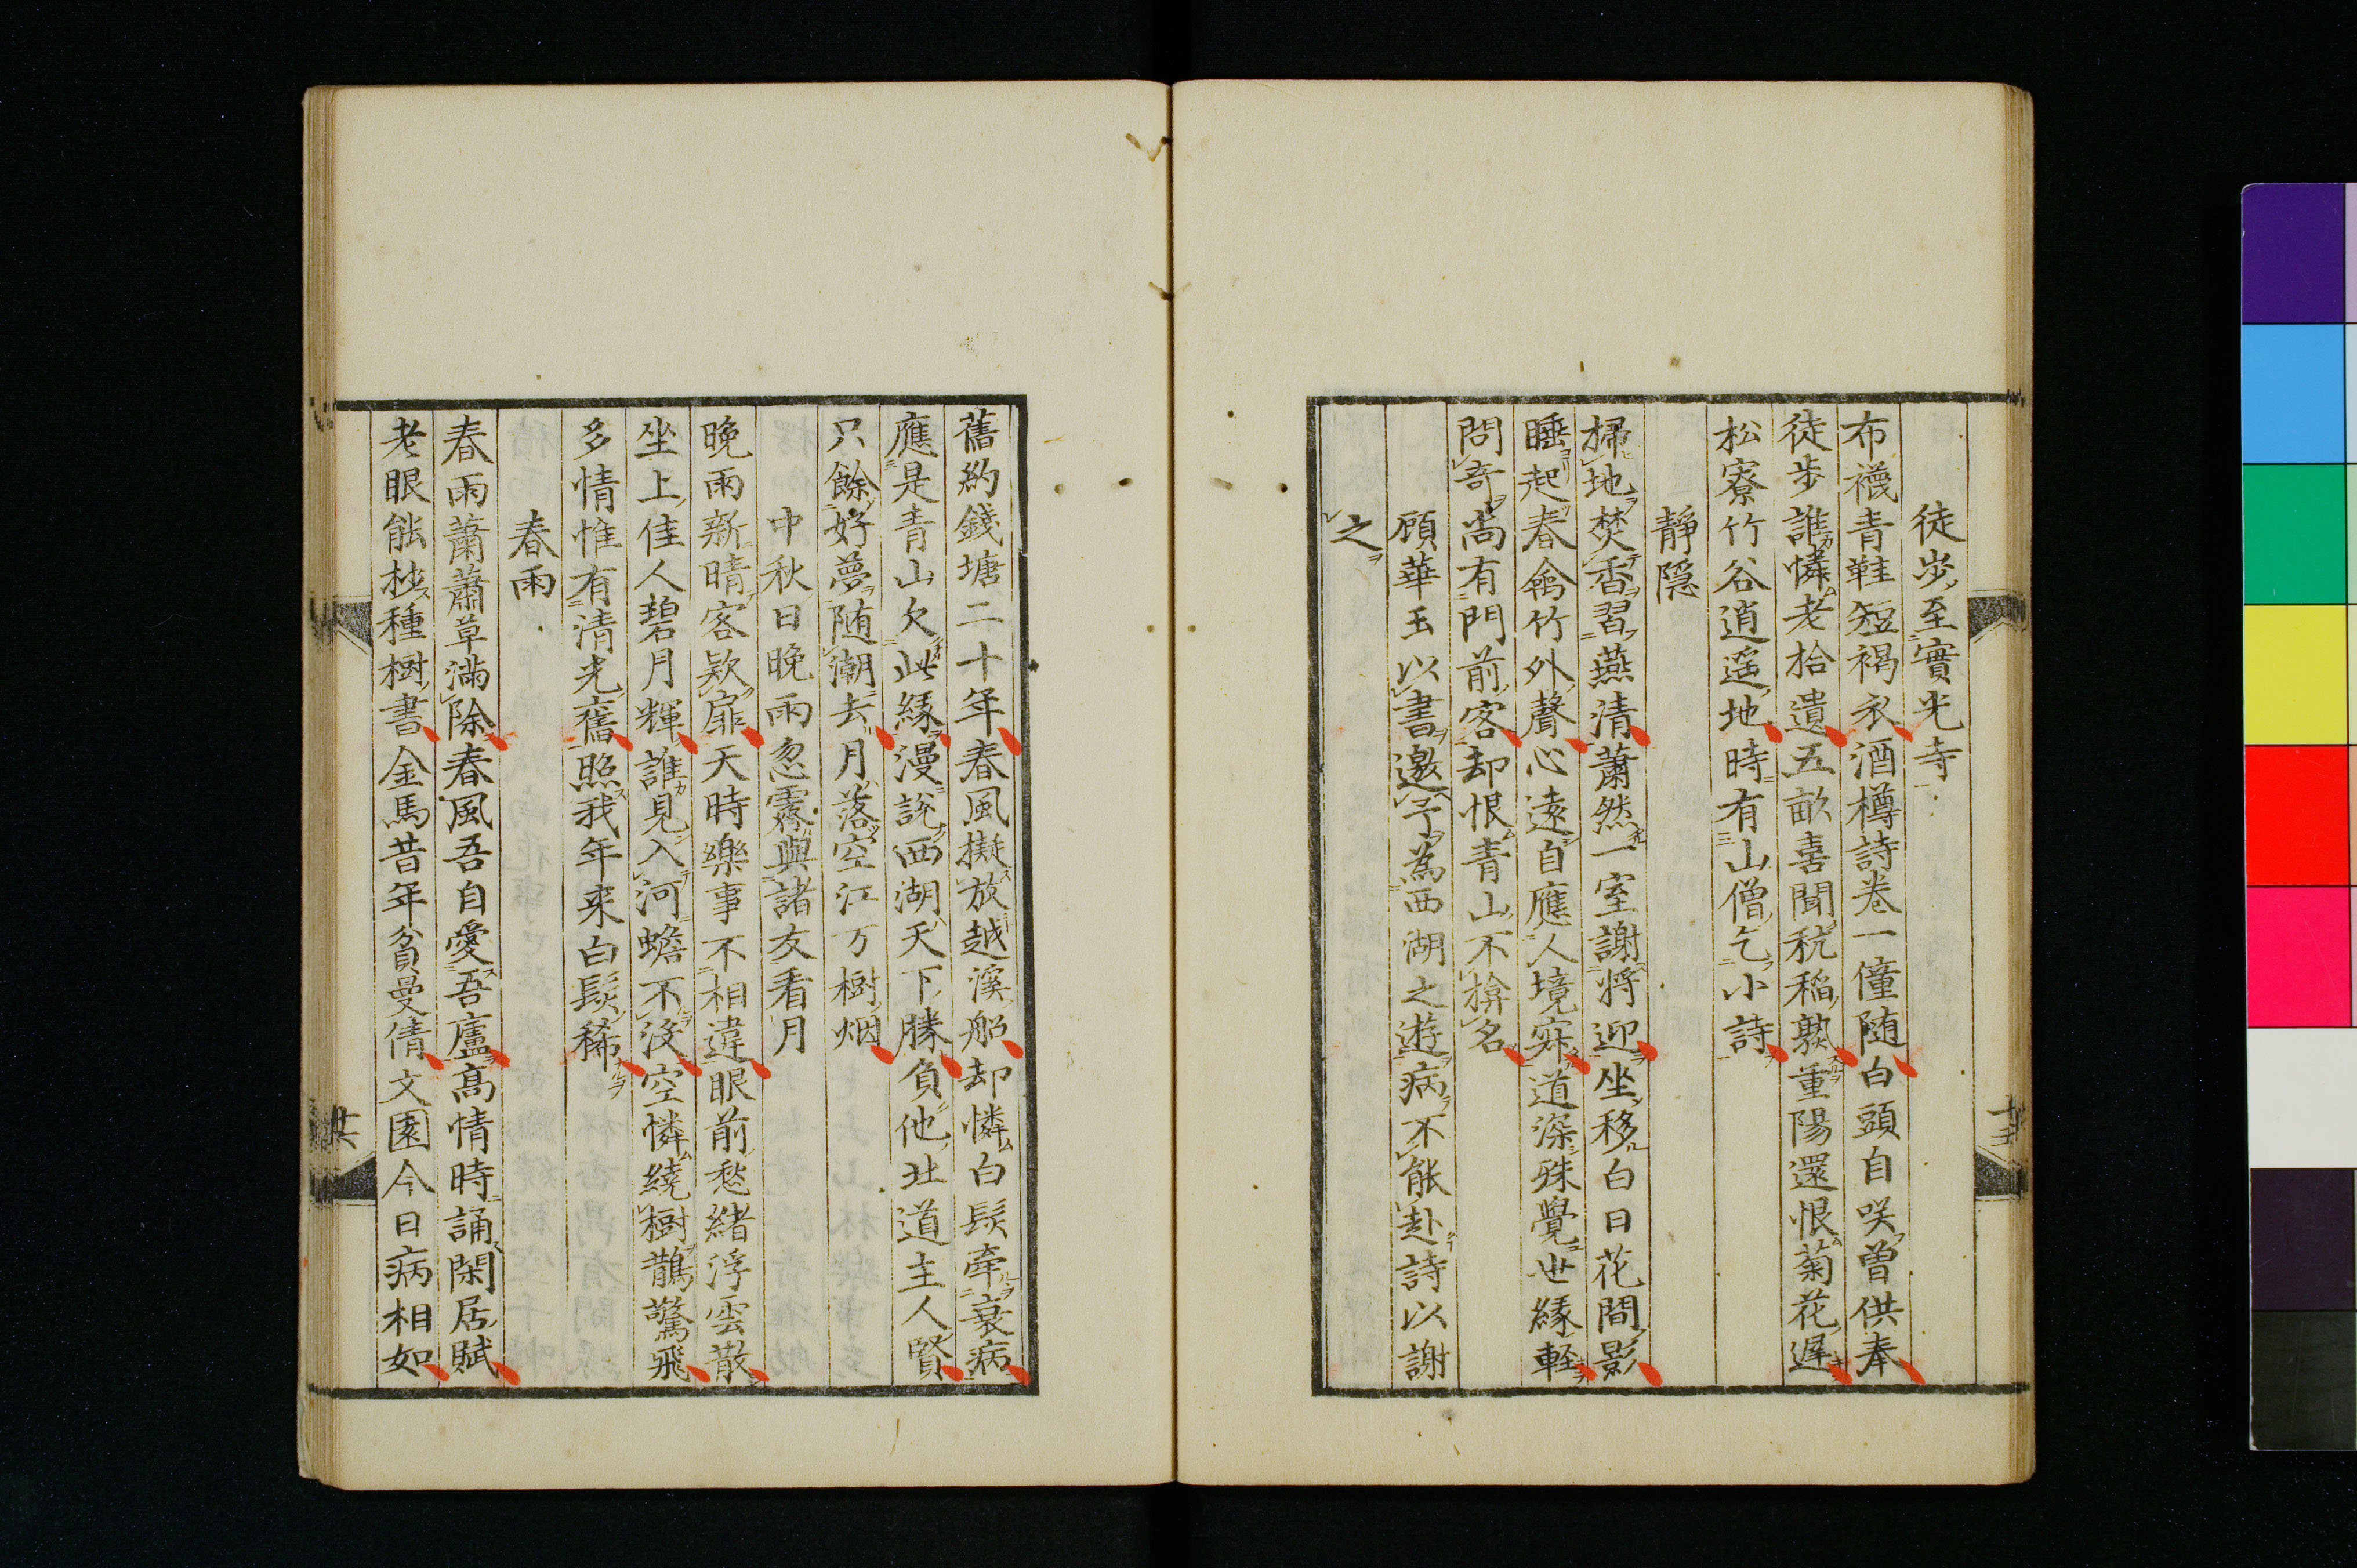 徒步至寳光寺
布襪青鞋短褐衣酒樽詩卷一僮随白頭自咲曽供奉
徒步誰憐老拾遺五畝喜聞秔稲熟重陽還恨菊花遅
松寮竹谷逍遥地時有山僧乞小詩
靜隠
掃地焚香習燕清蕭然一室謝将迎坐移白日花間影
睡起春禽竹外聲心遠自應人境寂道深殊覺世縁軽
問奇尚有門前客却恨青山不揜名
顧華玉以書邀予為西湖之遊病不能赴詩以謝
之
舊約錢塘二十年春風擬放越溪船却憐白髪牽衰病
應是青山欠此縁漫説西湖天下勝負他北道主人賢
只餘好夢随潮去月落空江万樹烟
中秋日晩雨忽霽與諸友看月
晩雨新晴客欵扉天時樂事不相違眼前愁緒浮雲散
坐上佳人碧月輝誰見入河蟾不没空憐繞樹鵲驚飛
多情惟有清光舊照我年来白髪稀
春雨
春雨蕭蕭草滿除春風吾自愛吾廬髙情時誦閑居賦
老眼能抄種樹書金馬昔年貧曼倩文園今日病相如